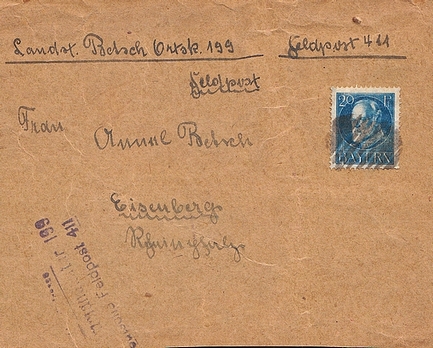 Landst. Betsch Ortsk. 199 Feldpost 411
Feldpost
20 Pf
BAYERN
Frau
Betsch
Eisenberg
Rheinpfalz
Feldpost 411
199